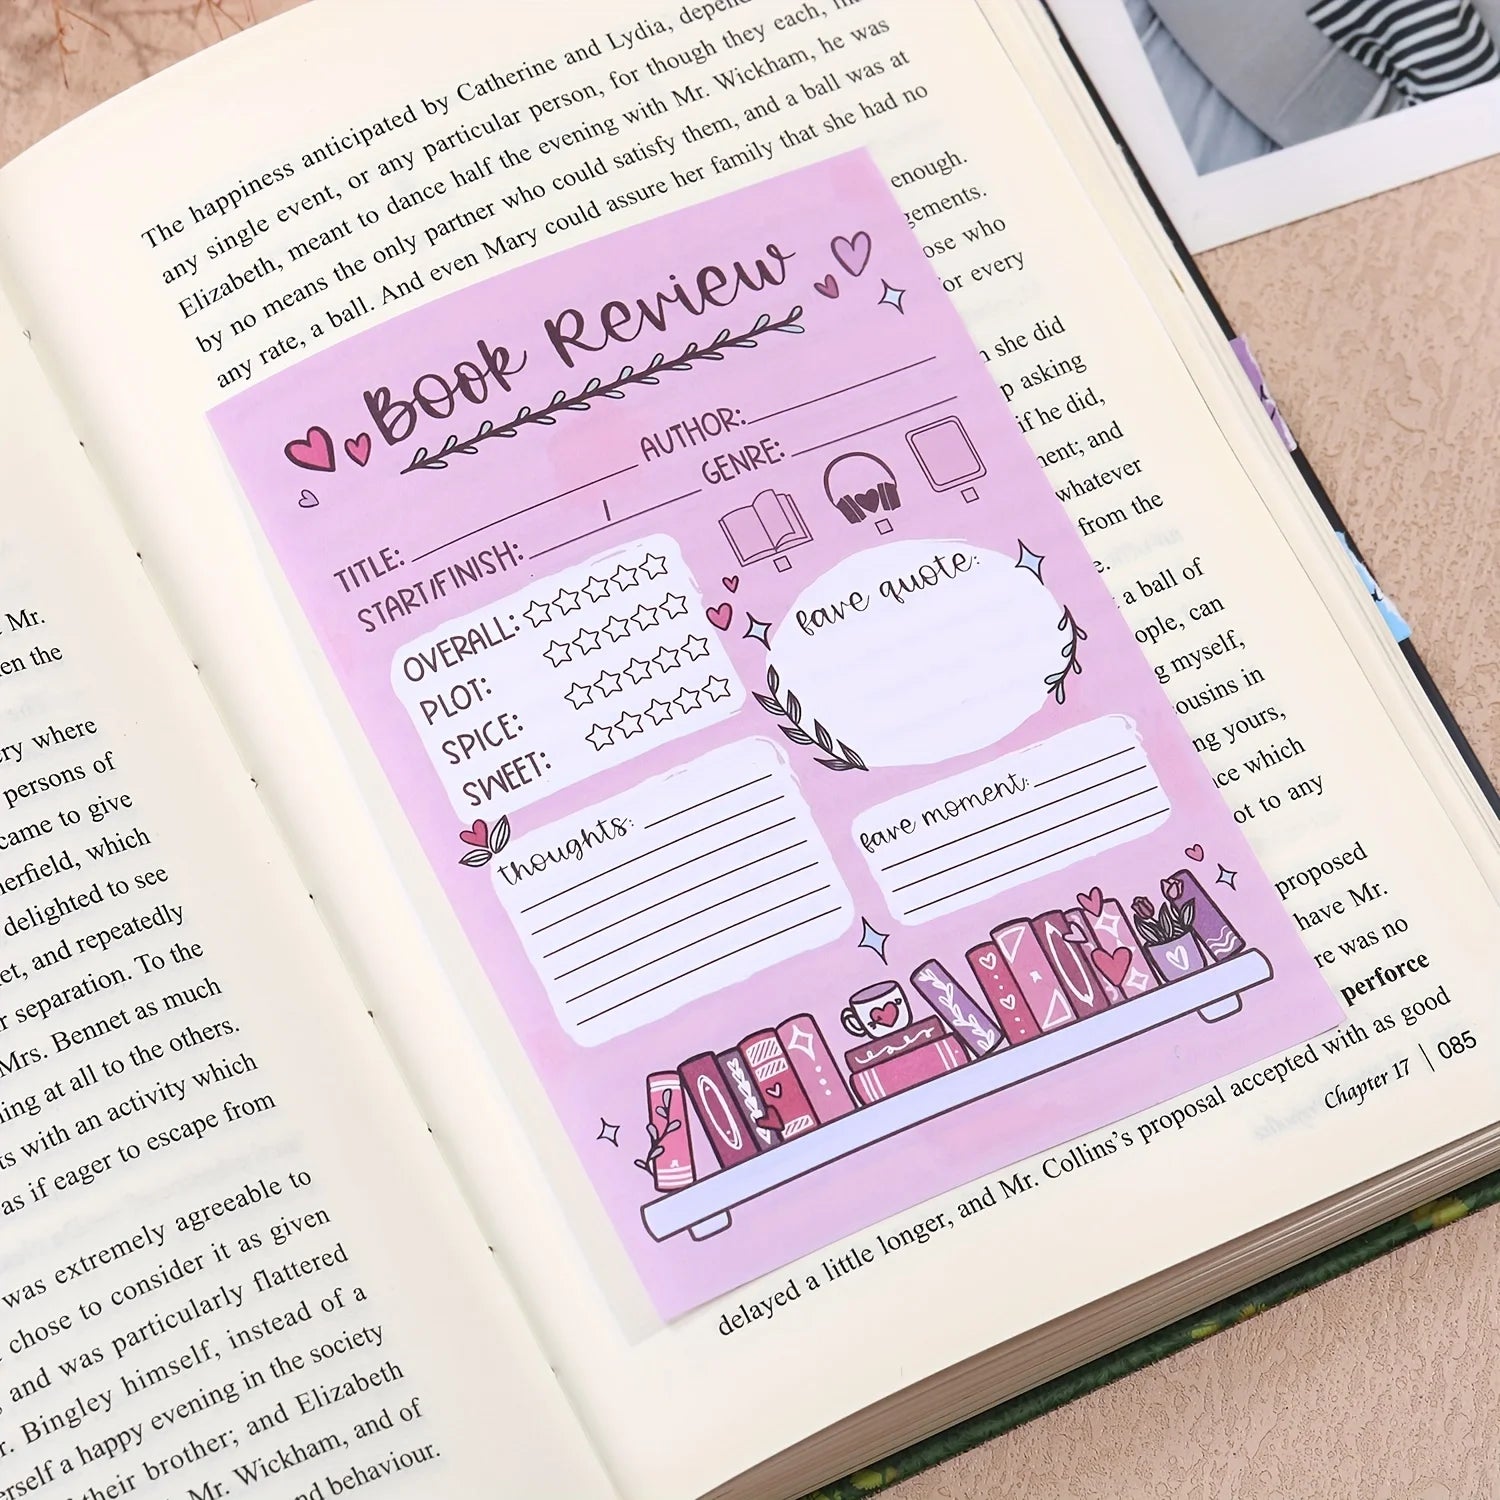 Mr.
en the
ery where
persons of
came to give
erfield, which
delighted to see
et, and repeatedly
r separation. To the
Mrs. Bennet as much
ing at all to the others.
ts with an activity which
as if eager to escape from
was extremely agreeable to
chose to consider it as given
and was particularly flattered
r. Bingley himself, instead of a
erself a happy evening in the society
their brother; and Elizabeth
Mr. Wickham, and of
nd behaviour.
The happiness anticipated by Catherine and Lydia, depen
any single event, or any particular person, for though they each,
Elizabeth, meant to dance half the evening with Mr. Wickham, he was
by no means the only partner who could satisfy them, and a ball was at
any rate, a ball. And even Mary could assure her family that she had no
enough.
gements.
ose who
or every
she did
p asking
if he did,
ment; and
whatever
from the
e.
a ball of
ople, can
g myself,
ousins in
ng yours,
ce which
ot to any
proposed
have Mr.
re was no
perforce
delayed a little longer, and Mr. Collins's proposal accepted with as good
Chapter 17 | 085
BOOK REVIEW
TITLE: AUTHOR:
START/FINISH: / GENRE:
OVERALL:
PLOT:
SPICE:
SWEET:
fave quote:
thoughts:
fave moment: